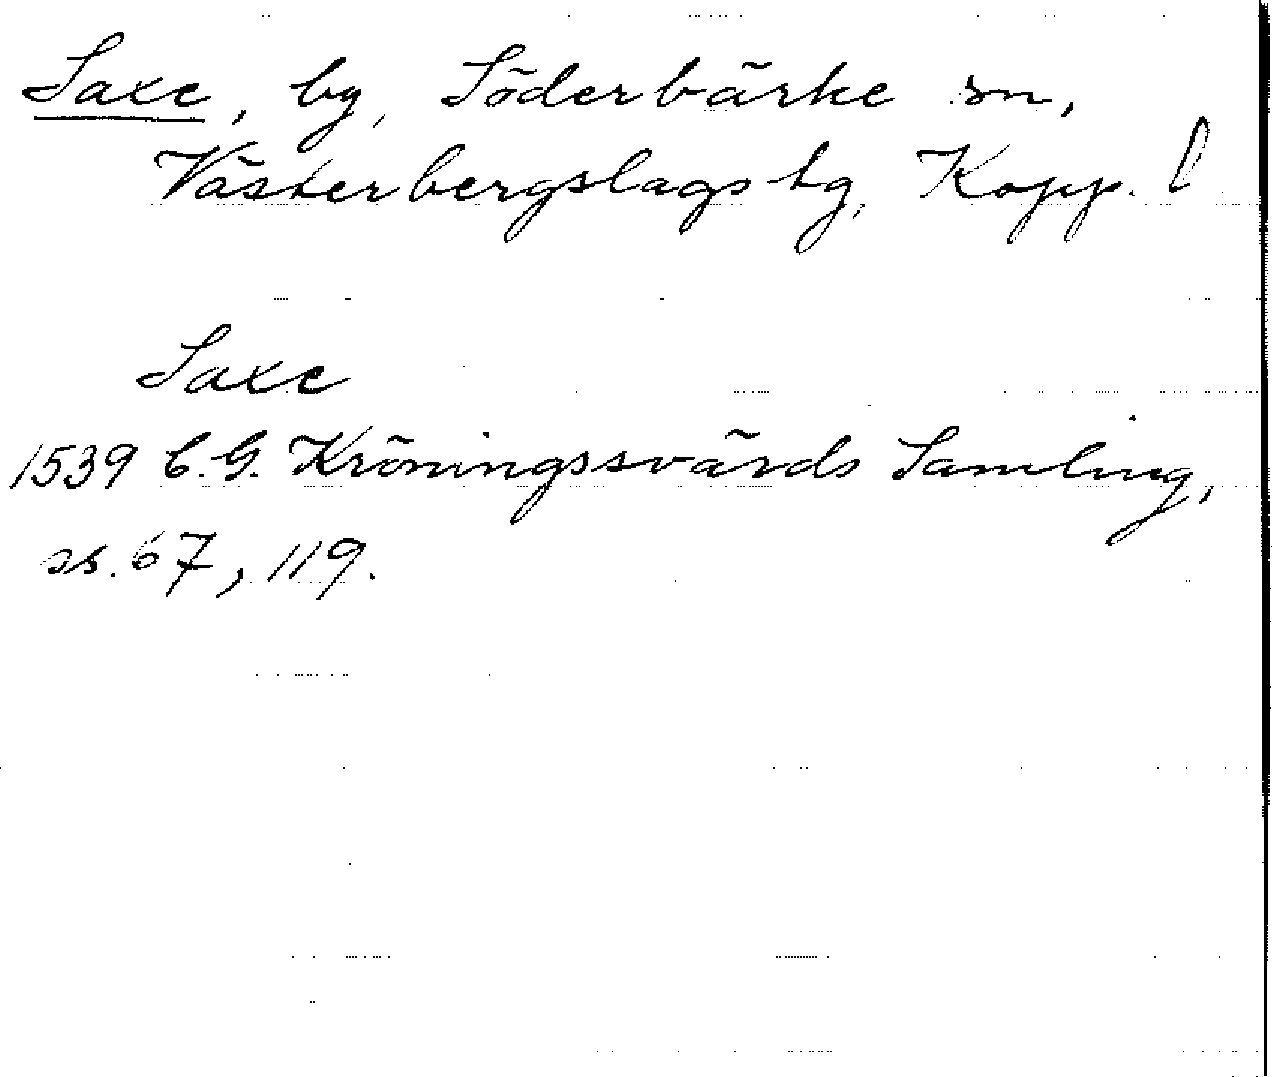 Saxe, by, Söderbärke sn,
Västerbergslags tg, Kopp. l
Saxe
1539 C. G. Kröningssvärds Samling,
ss. 67, 119.